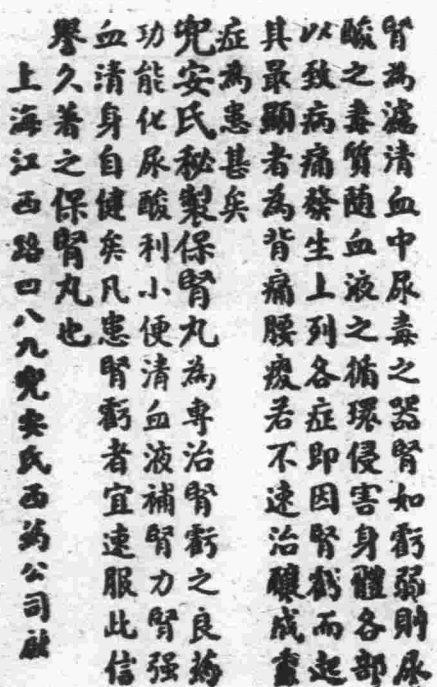 腎為濾清血中尿毒之器腎如虧弱則尿
酸之毒質随血液之循環侵害身體各部
以致病痛發生上列各症即因腎虧而起
其最顯者為背痛腰痠若不速治釀成重
症為患甚矣
兜安氏秘製保腎丸為專治腎虧之良药
功能化尿酸利小便清血液補腎力腎强
血清身自健矣凡患腎虧者宜速服此信
譽久著之保腎丸也
上海江西路四八九兜安氏西药公司啟